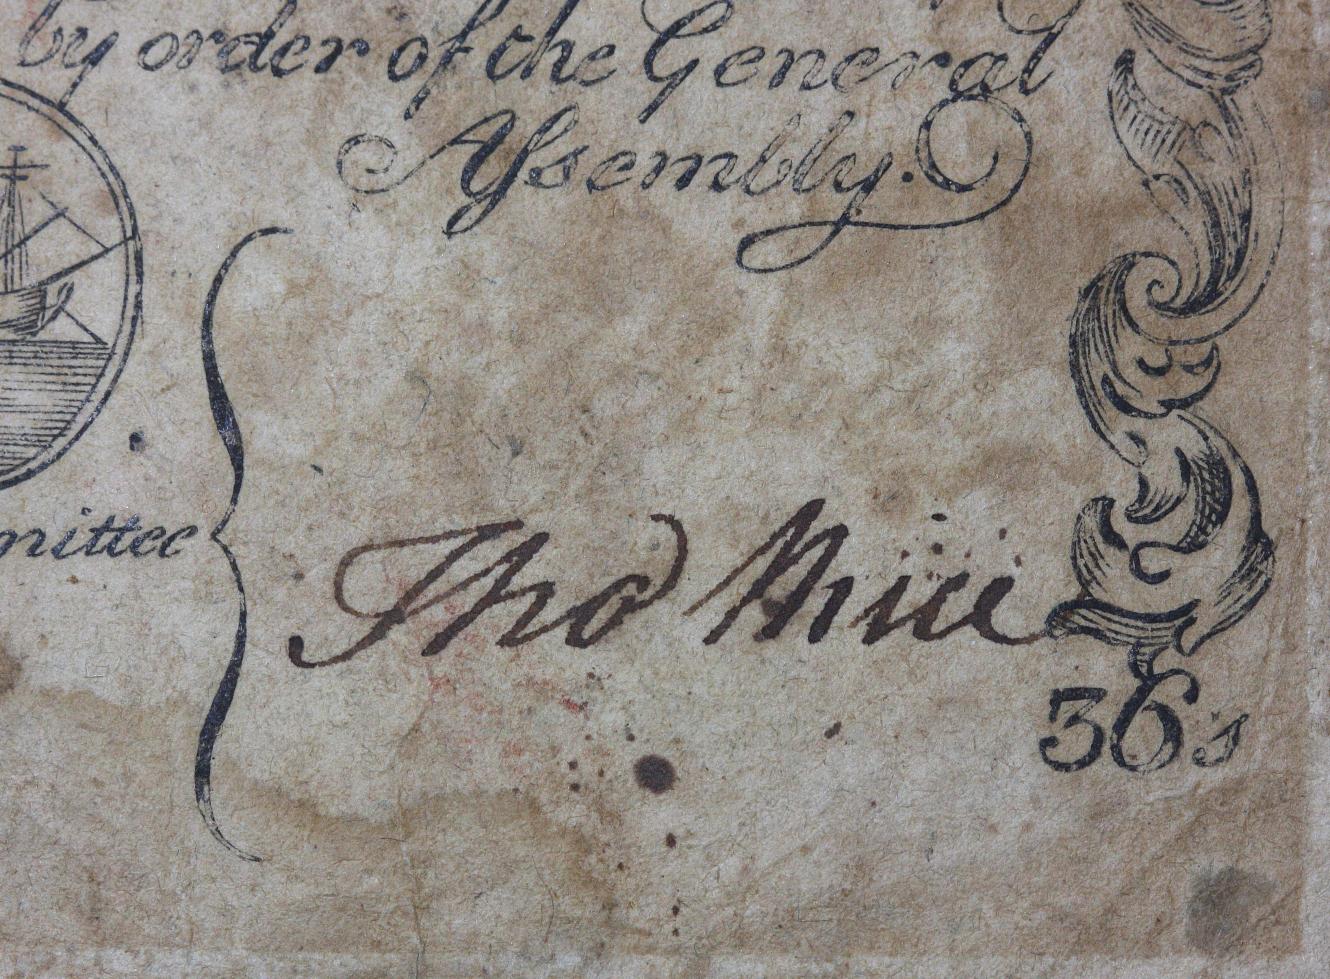 by order of the General
Assembly.
mittee
Tho
36s